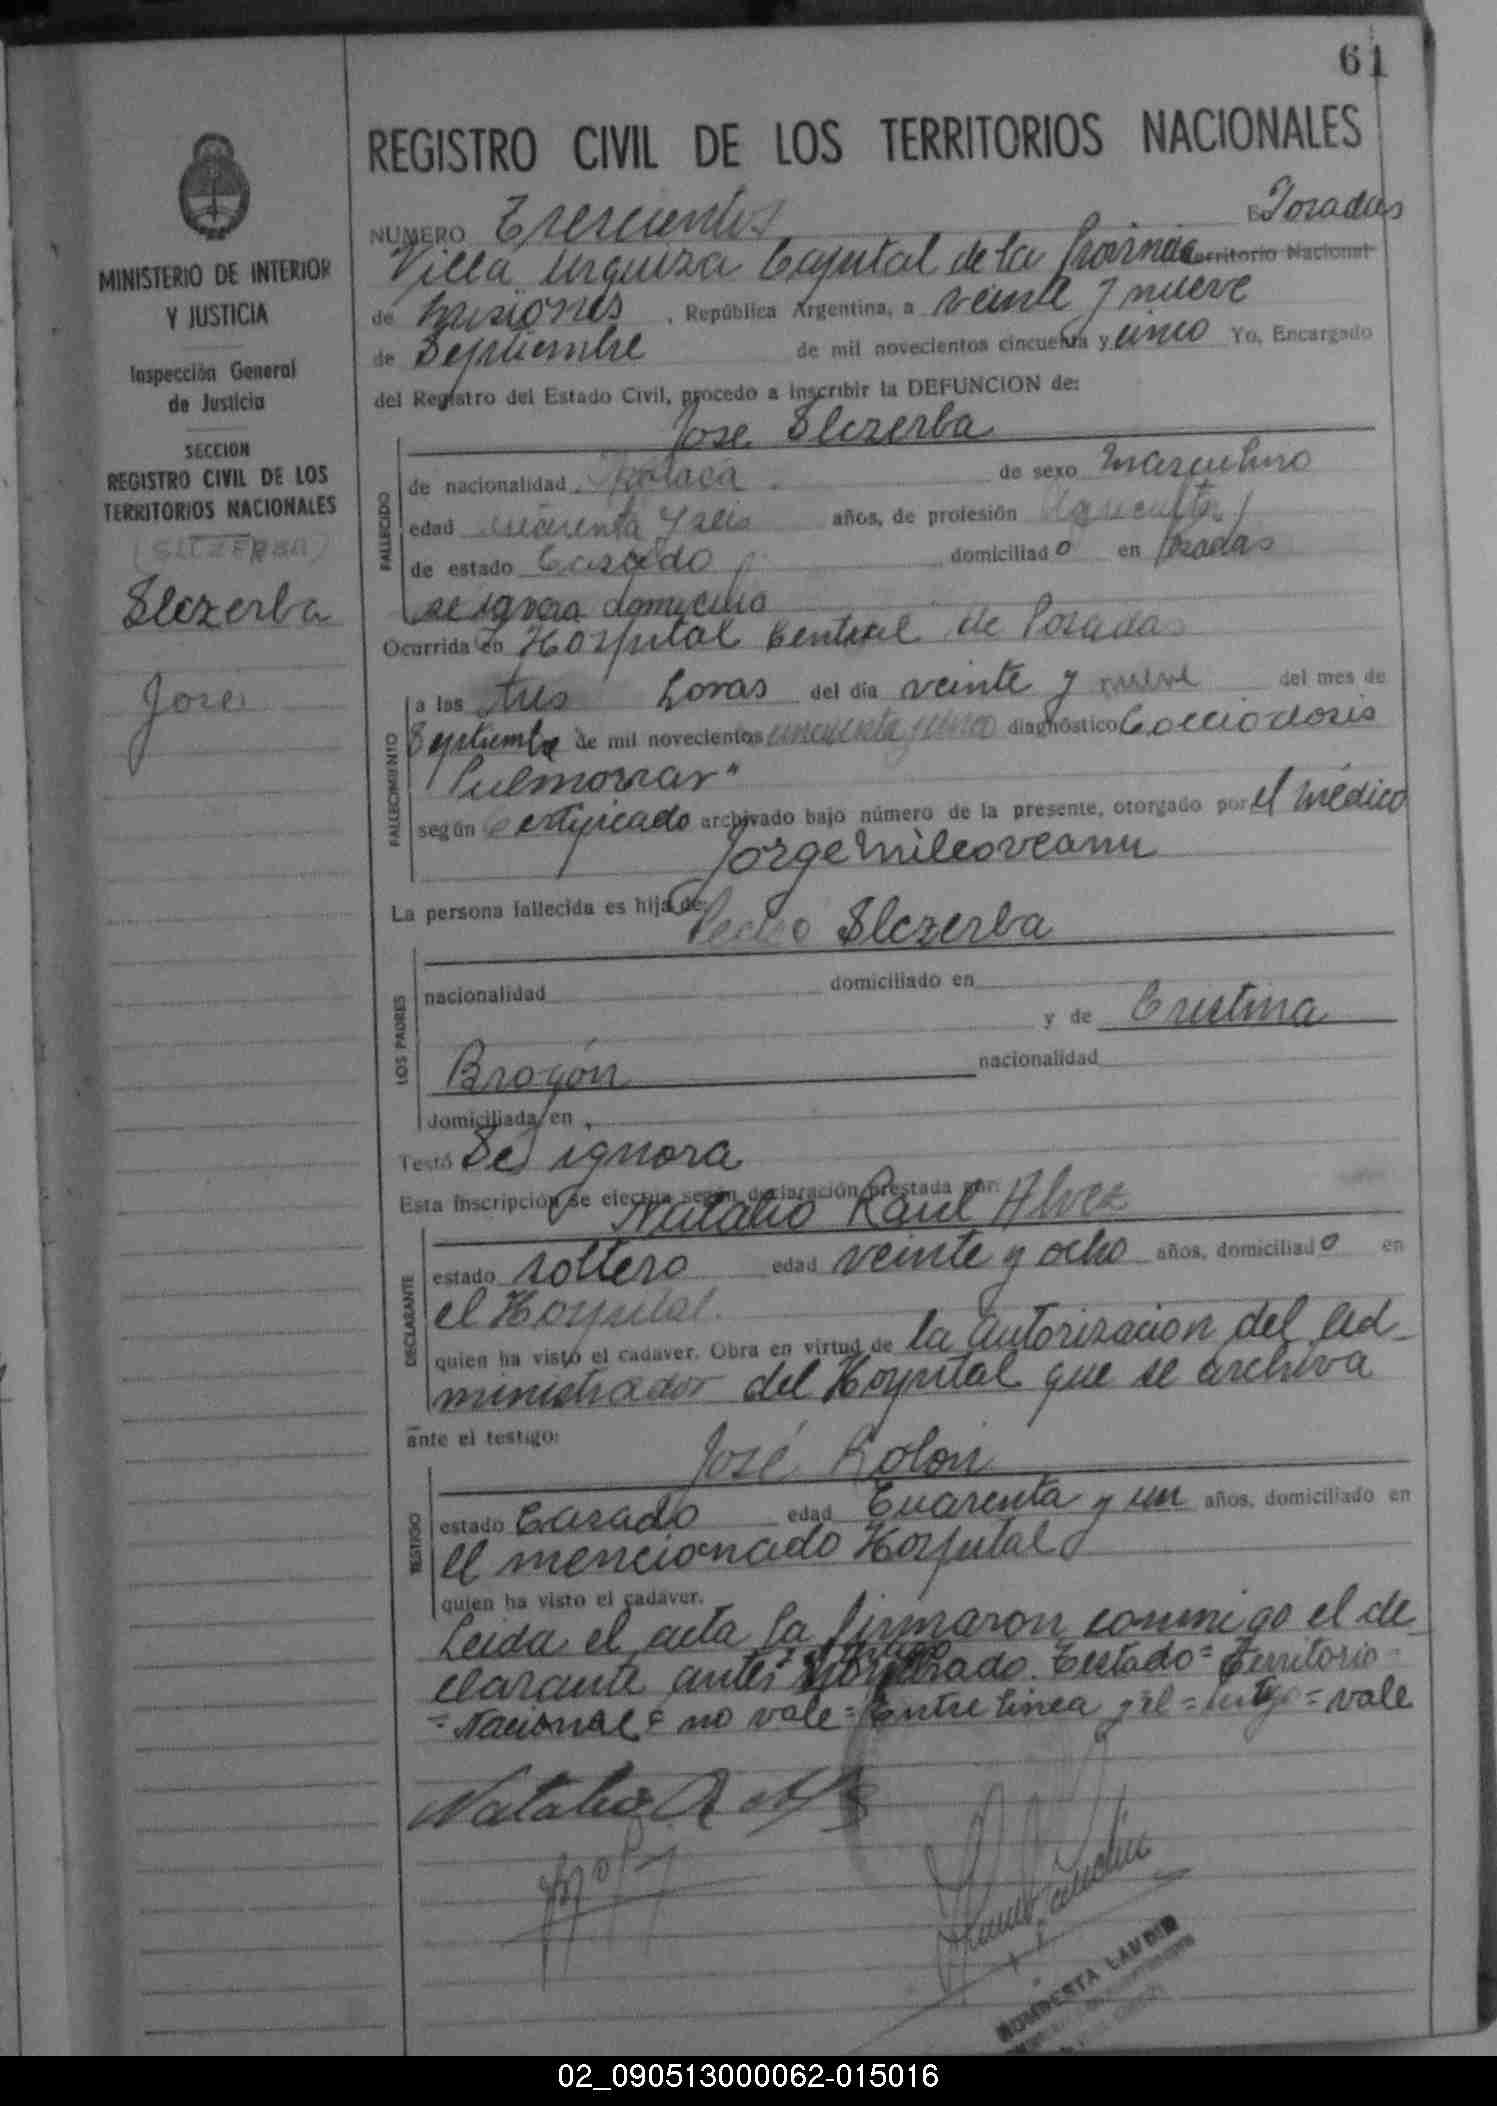 61
REGISTRO CIVIL DE LOS TERRITORIOS NACIONALES
MINISTERIO DE INTERIOR
Y JUSTICIA
Inspección General
de Justicia
SECCION
REGISTRO CIVIL DE LOS
TERRITORIOS NACIONALES
Slczerba
Jose
NUMERO Trescientos En Posadas
Villa Urquiza Capital de la Provincia Territorio Nacional
de Misiones, República Argentina, a veinte y nueve
de Septiembre de mil novecientos cincuenta y cinco Yo, Encargado
del Registro del Estado Civil, procedo a inscribir la DEFUNCION de:
Jose Slczerba
FALLECIDO
de nacionalidad Polaca de sexo Masculino
edad cuarenta y seis años, de profesión Agricultor
de estado Casado domiciliado en Posadas
se ignora domicilio
Ocurrida en Hospital Central de Posadas
FALLECIMIENTO
a las tres horas del día veinte y nueve del mes de
Septiembre de mil novecientos cincuenta y cinco diagnóstico
Pulmonar"
según certificado archivado bajo número de la presente, otorgado por el médico
Jorge Milcoveanu
La persona fallecida es hijo de: Pedro Slczerba
LOS PADRES
nacionalidad domiciliado en
y de Cristina
Brogón nacionalidad
domiciliada en
Testó Se ignora
Esta inscripción se efectúa según declaración prestada por:
Natalio Raul Alvez
DECLARANTE
estado soltero edad veinte y ocho años, domiciliado en
el Hospital.
quien ha visto el cadaver. Obra en virtud de la autorizacion del ad-
ministrador del Hospital que se archiva
ante el testigo:
José Rolon
TESTIGO
estado Casado edad Cuarenta y un años, domiciliado en
el mencionado Hospital
quien ha visto el cadáver.
Leida el acta la firmaron conmigo el de-
clarante antes y el testigo nombrado. Testado = Territorio =
= Nacional = no vale = Entre linea y el = testigo = vale
Natalio R
LANDIN
02_090513000062-015016